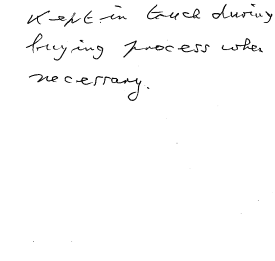 Kept in touch during
buying process when
necessary.